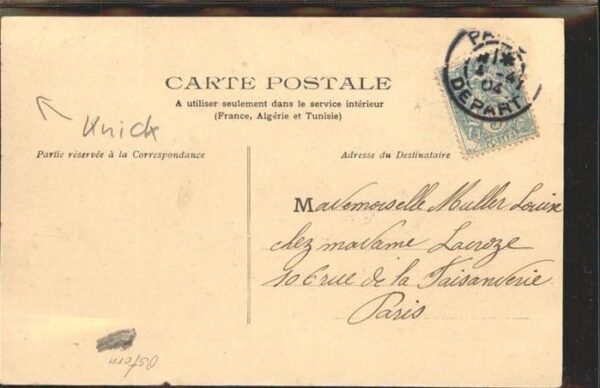 CARTE POSTALE
A utiliser seulement dans le service intérieur
(France, Algérie et Tunisie)
Knick
Partie réservée à la Correspondance
Adresse du Destinataire
DEPART
04
Mademoiselle Muller Louise
chez madame Lacroze
106 rue de la Faisanderie
Paris
Ostern